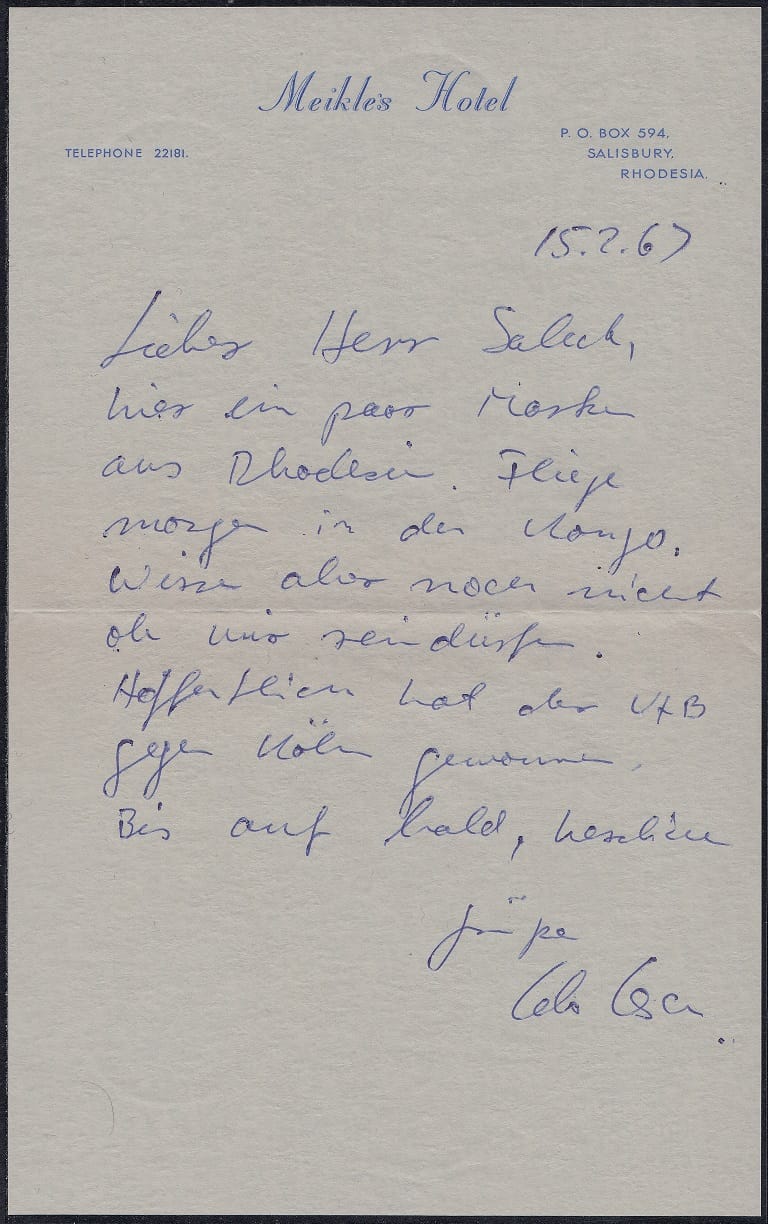 Meikles Hotel
TELEPHONE 22181.
P. O. BOX 594,
SALISBURY,
RHODESIA.
15.2.67
Lieber Herr
hier ein paar Marken
aus Rhodesien. Fliege
morgen in den Kongo.
Weiss aber noch nicht
ob wir rein dürfen.
Hoffentlich hat der VfB
gegen Köln gewonnen.
Bis auf bald, herzliche
Grüße